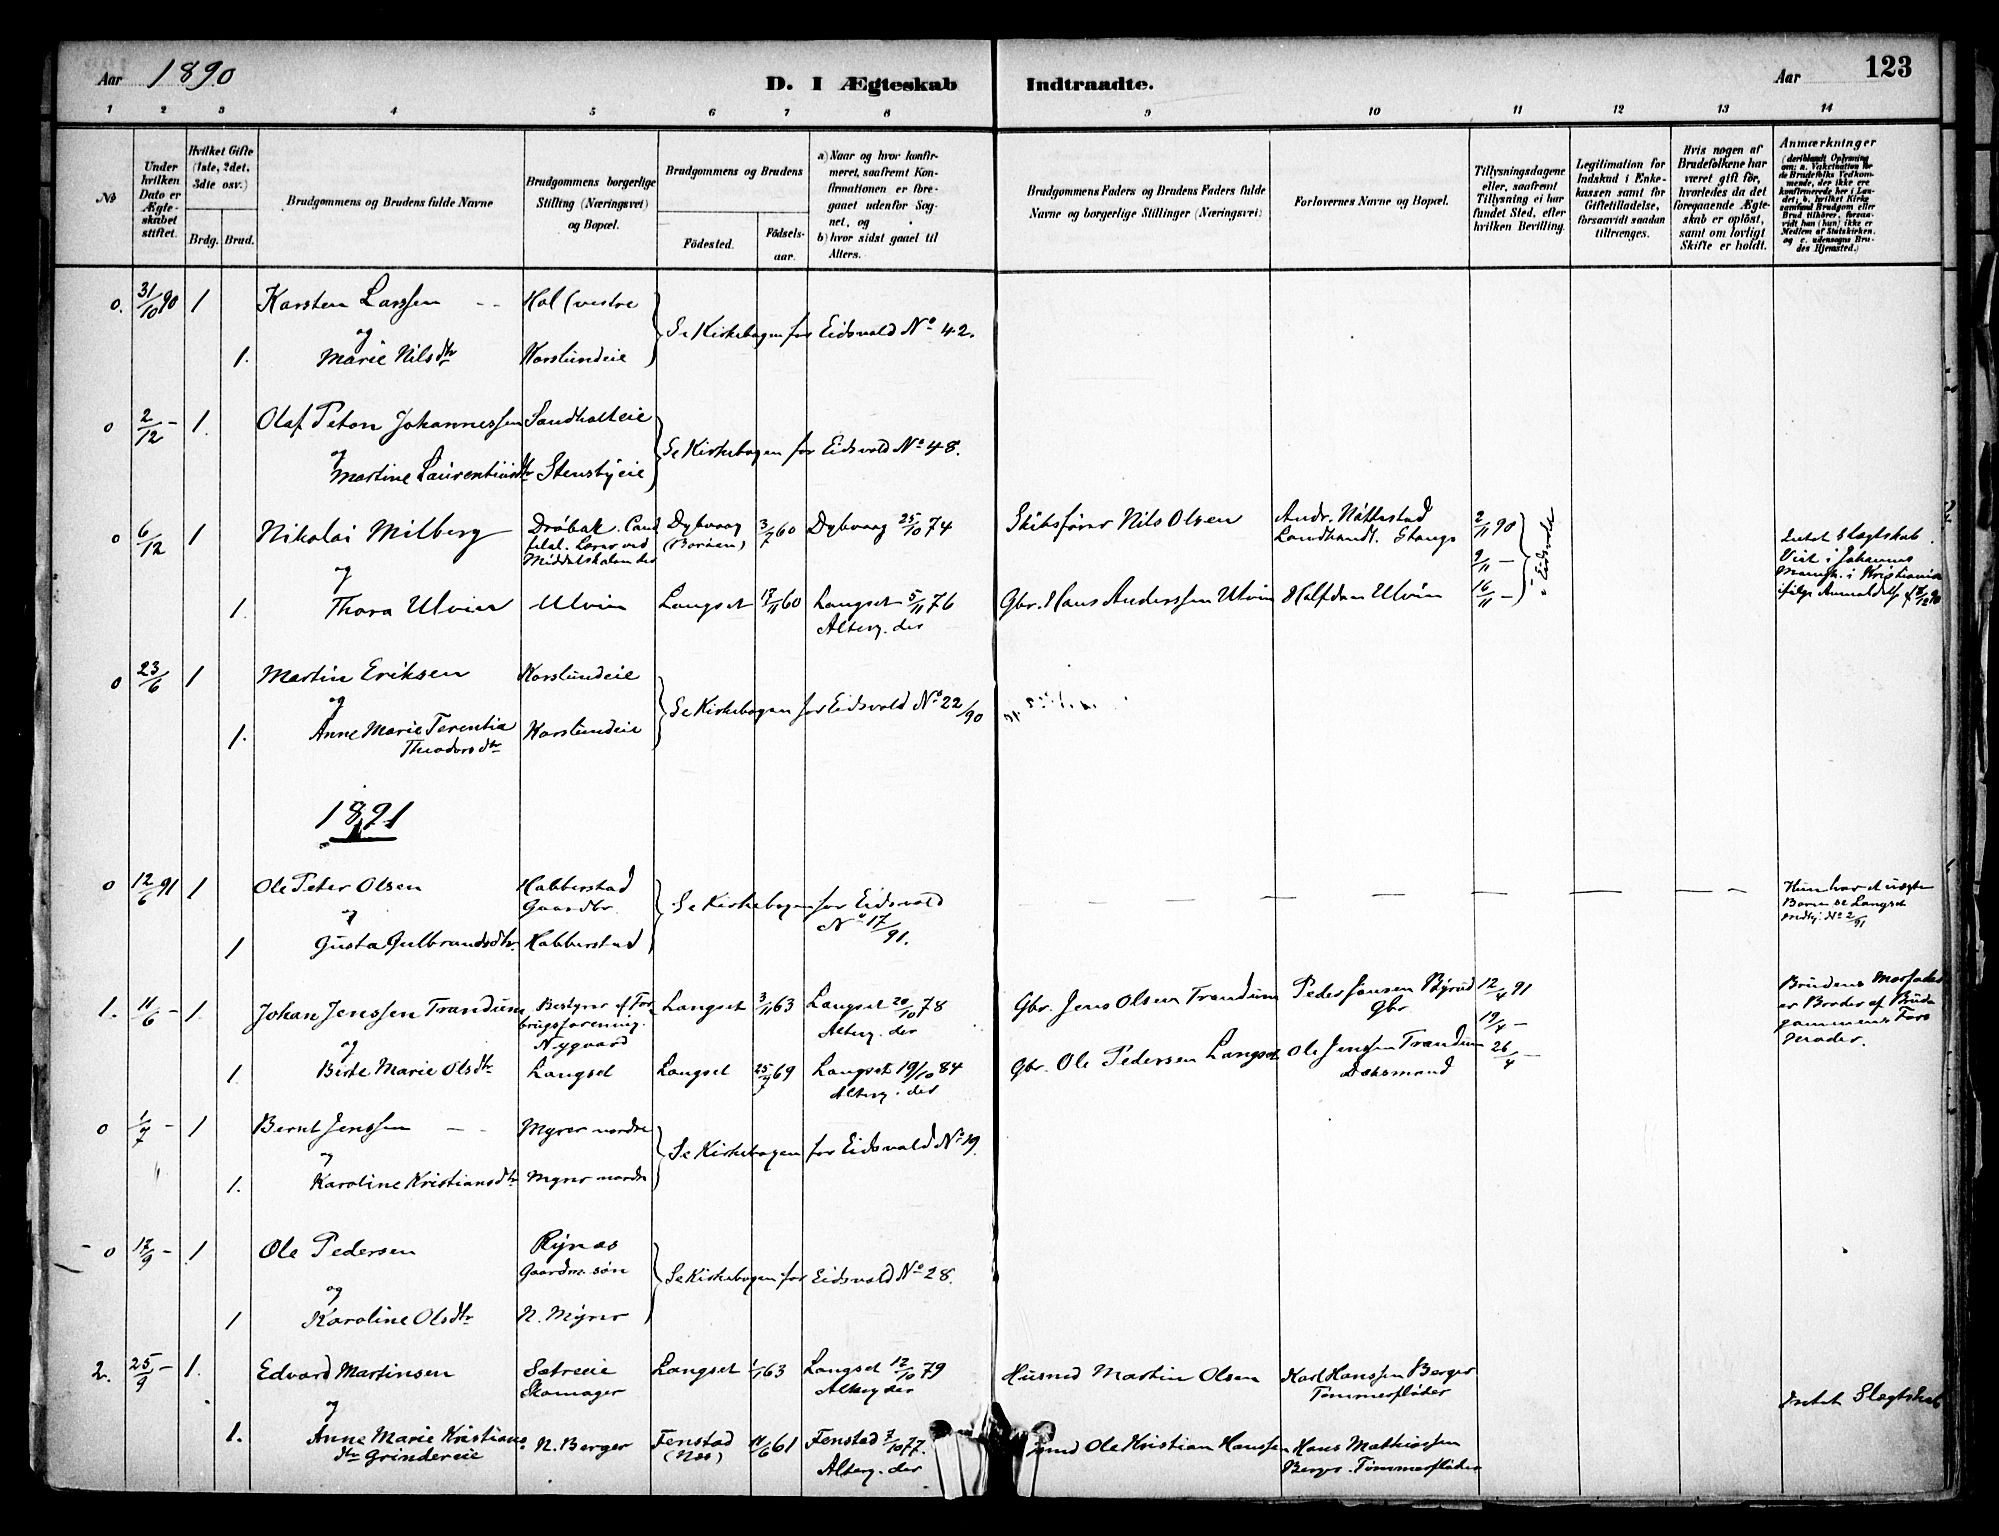 Aar 1890
D. I Ægteskab Indtraadte.
Aar 123
1 2 3 4 5 6 7 8 9 10 11 12 13 14
No
Under hvilken Dato er Ægteskabet stiftet.
Hvilket Gifte (1ste, 2det, 3die osv.)
Brdg. Brud.
Brudgommens og Brudens fulde Navne
Brudgommens borgerlige Stilling (Næringsvei) og Bopæl.
Brudgommens og Brudens
Födested. Födselsaar.
a) Naar og hvor konfirmeret, saafremt Konfirmationen er foregaaet udenfor Sognet, og
b) hvor sidst gaaet til Alters.
Brudgommens Faders og Brudens Faders fulde Navne og borgerlige Stillinger (Næringsvei)
Forlovernes Navne og Bopæl.
Tillysningsdagene eller, saafremt Tillysning ei har fundet Sted, efter hvilken Bevilling.
Legitimation for Indskud i Enkekassen samt for Giftetilladelse, forsaavidt saadan tiltrænges.
Hvis nogen af Brudefolkene har været gift för, hvorledes da det foregaaende Ægteskab er oplöst, samt om lovligt Skifte er holdt.
Anmærkninger
(deriblandt Oplysning om: a. Vakcination for de Brudefolks Vedkommende, der ikke ere konfirmerede her i Landet; b. hvilket Kirkesamfund Brudgom eller Brud tilhörer, forsaavidt han (hun) ikke er Medlem af Statskirken, og c. udensogns Brudes Hjemsted.)
0. 31/10 90 1 Karsten Larssen Hol (vestre
og
1. Marie Nilsdtr Korslundeie
Se Kirkebogen for Eidsvold No 42.
0 2/12 - 1. Olaf Peton Johannessen Sandholteie
og
Martine Laurentiusdtr Stensbyeie
Se Kirkebogen for Eidsvold No 48.
0 6/12 1 Nikolai Milberg Dröbak. Cand filol. Lærer ved Middelskolen der Dybvaag (Boröen) 3/7 60 Dybvaag 25/10 74 Skibsförer Nils Olsen Andr. Nöttestad Landhandl. Stange 2/11 90
9/11 -
og
1. Thora Ulvin Ulvin Langset 17/11 60 Langset 5/11 76 Alterg. der Gbr. Hans Anderssen Ulvin Halfdan Ulvin 16/11 -
i Eidsvold
Intet Slægtskab.
Viet i Johannes
Mengh. i Kristiania
ifölge Anmeldelse
0 23/6 1 Martin Eriksen Korslundeie
og
1. Anne Marie Terentia Theodorsdtr Korslundeie
Se Kirkebogen for Eidsvold No 22/90
1891
0 12/6 91 1 Ole Peter Olsen Habberstad Gaardbr.
og
1 Gusta Gulbrandsdtr. Habberstad
Se Kirkebogen for Eidsvold
No 17/91.
Hun har et uægte
Barn se Langset
No 2/91
1. 11/6 - 1. Johan Jenssen Trandum Bestyrer af Forbrugsforening. Nygaard Langset 3/11 63 Langset 20/10 78 Alterg. der Gbr. Jens Olsen Trandum Peder Jansen Byrud Gbr 12/4 91
19/4 -
og
1. Berte Marie Olsdtr Langset Langset 25/7 69 Langset 19/10 84 Alterg. der Gbr. Ole Pedersen Langset Ole Jenssen Trandum 26/4 -
Brudens Morfader
er Broder af Brudgommens Farfader.
0 1/7 - 1 Bernt Jenssen Myrer nordre
og
1. Karoline Kristiansdtr Myrer nordre
Se Kirkebogen for Eidsvold No 19.
0 17/9 - 1 Ole Pedersen Rynæs Gaardm. sön
og
1 Karoline Olsdtr N. Myrer
Se Kirkebogen for Eidsvold No 28.
2. 25/9 - 1. Edvard Martinsen Sætreeie Skomager Langset 1/1 63 Langset 12/10 79 Alterg der Husmd Martin Olsen Karl Hanssen Berger Tömmerflöder
og
1. Anne Marie Kristiansdtr Grindereie N. Berger Fenstad (Nes) 11/6 61 Fenstad 7/10 77. Alterg. der Ole Kristian Hanssen Hans Mathiassen Berger. Tömmerflöder
Intet Slægtskab